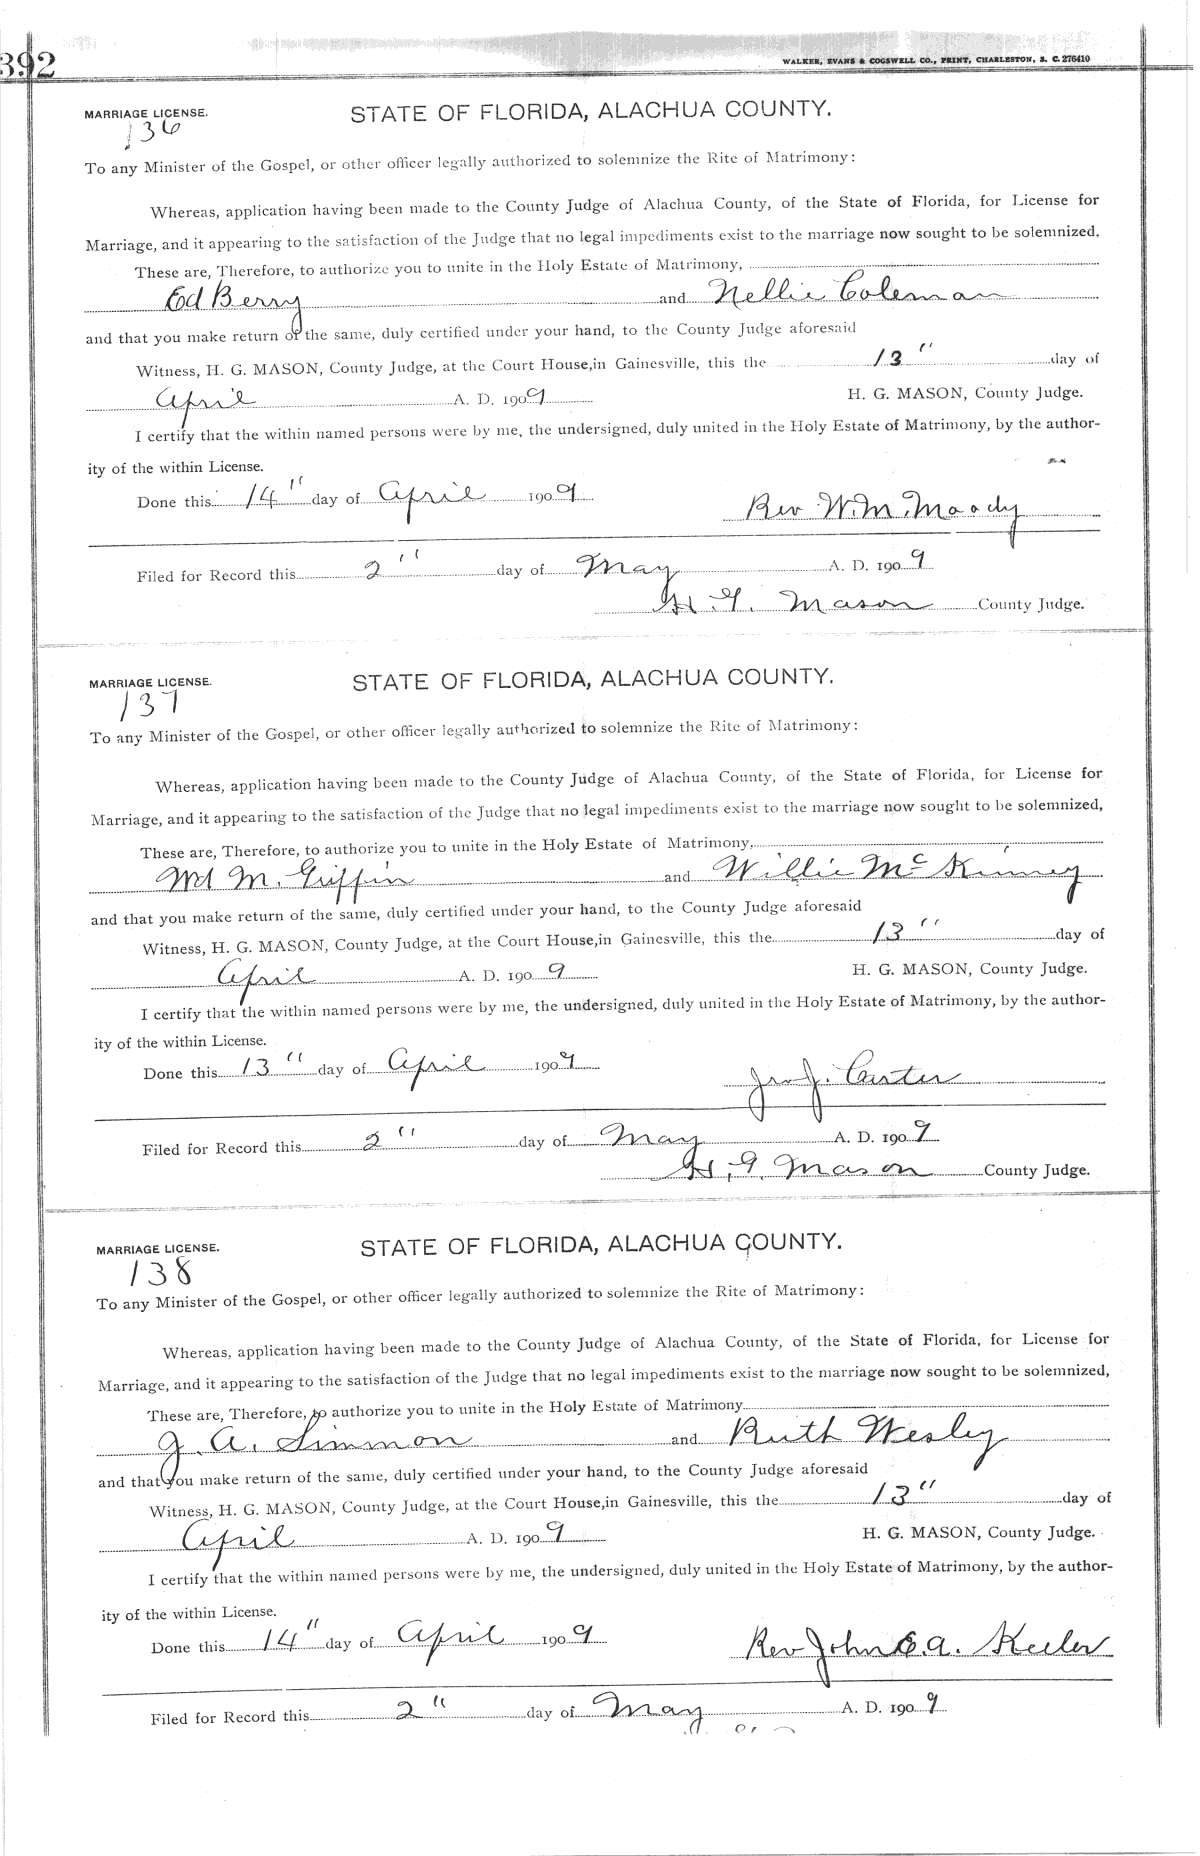 392
WALKER, EVANS & COGSWELL CO., PRINT, CHARLESTON, S. C. 276410
MARRIAGE LICENSE. STATE OF FLORIDA, ALACHUA COUNTY.
136
To any Minister of the Gospel, or other officer legally authorized to solemnize the Rite of Matrimony:
Whereas, application having been made to the County Judge of Alachua County, of the State of Florida, for License for
Marriage, and it appearing to the satisfaction of the Judge that no legal impediments exist to the marriage now sought to be solemnized,
These are, Therefore, to authorize you to unite in the Holy Estate of Matrimony,
Ed Berry and Nellie Coleman
and that you make return of the same, duly certified under your hand, to the County Judge aforesaid
Witness, H. G. MASON, County Judge, at the Court House,in Gainesville, this the 13" day of
April A. D. 1909 H. G. MASON, County Judge.
I certify that the within named persons were by me, the undersigned, duly united in the Holy Estate of Matrimony, by the author-
ity of the within License.
Done this 14" day of April 1909 Rev W. M. Moody
Filed for Record this 2" day of May A. D. 1909
H. G. Mason County Judge.
MARRIAGE LICENSE. STATE OF FLORIDA, ALACHUA COUNTY.
137
To any Minister of the Gospel, or other officer legally authorized to solemnize the Rite of Matrimony:
Whereas, application having been made to the County Judge of Alachua County, of the State of Florida, for License for
Marriage, and it appearing to the satisfaction of the Judge that no legal impediments exist to the marriage now sought to be solemnized,
These are, Therefore, to authorize you to unite in the Holy Estate of Matrimony,
M. Griffin and Willie McKinney
and that you make return of the same, duly certified under your hand, to the County Judge aforesaid
Witness, H. G. MASON, County Judge, at the Court House,in Gainesville, this the 13" day of
April A. D. 1909 H. G. MASON, County Judge.
I certify that the within named persons were by me, the undersigned, duly united in the Holy Estate of Matrimony, by the author-
ity of the within License.
Done this 13" day of April 1909 Jno J. Carter
Filed for Record this 2" day of May A. D. 1909
H. G. Mason County Judge.
MARRIAGE LICENSE. STATE OF FLORIDA, ALACHUA COUNTY.
138
To any Minister of the Gospel, or other officer legally authorized to solemnize the Rite of Matrimony:
Whereas, application having been made to the County Judge of Alachua County, of the State of Florida, for License for
Marriage, and it appearing to the satisfaction of the Judge that no legal impediments exist to the marriage now sought to be solemnized,
These are, Therefore, to authorize you to unite in the Holy Estate of Matrimony
J. A. Simmon and Ruth Wesley
and that you make return of the same, duly certified under your hand, to the County Judge aforesaid
Witness, H. G. MASON, County Judge, at the Court House,in Gainesville, this the 13" day of
April A. D. 1909 H. G. MASON, County Judge.
I certify that the within named persons were by me, the undersigned, duly united in the Holy Estate of Matrimony, by the author-
ity of the within License.
Done this 14" day of April 1909 Rev John E. A. Keeler
Filed for Record this 2" day of May A. D. 1909